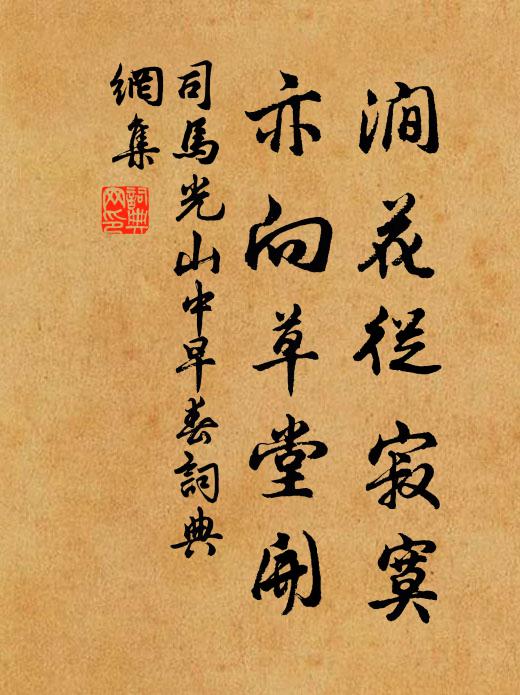 澗花從寂寞
亦向草堂開
司馬光山中早春詞典
網集
詞典
网印